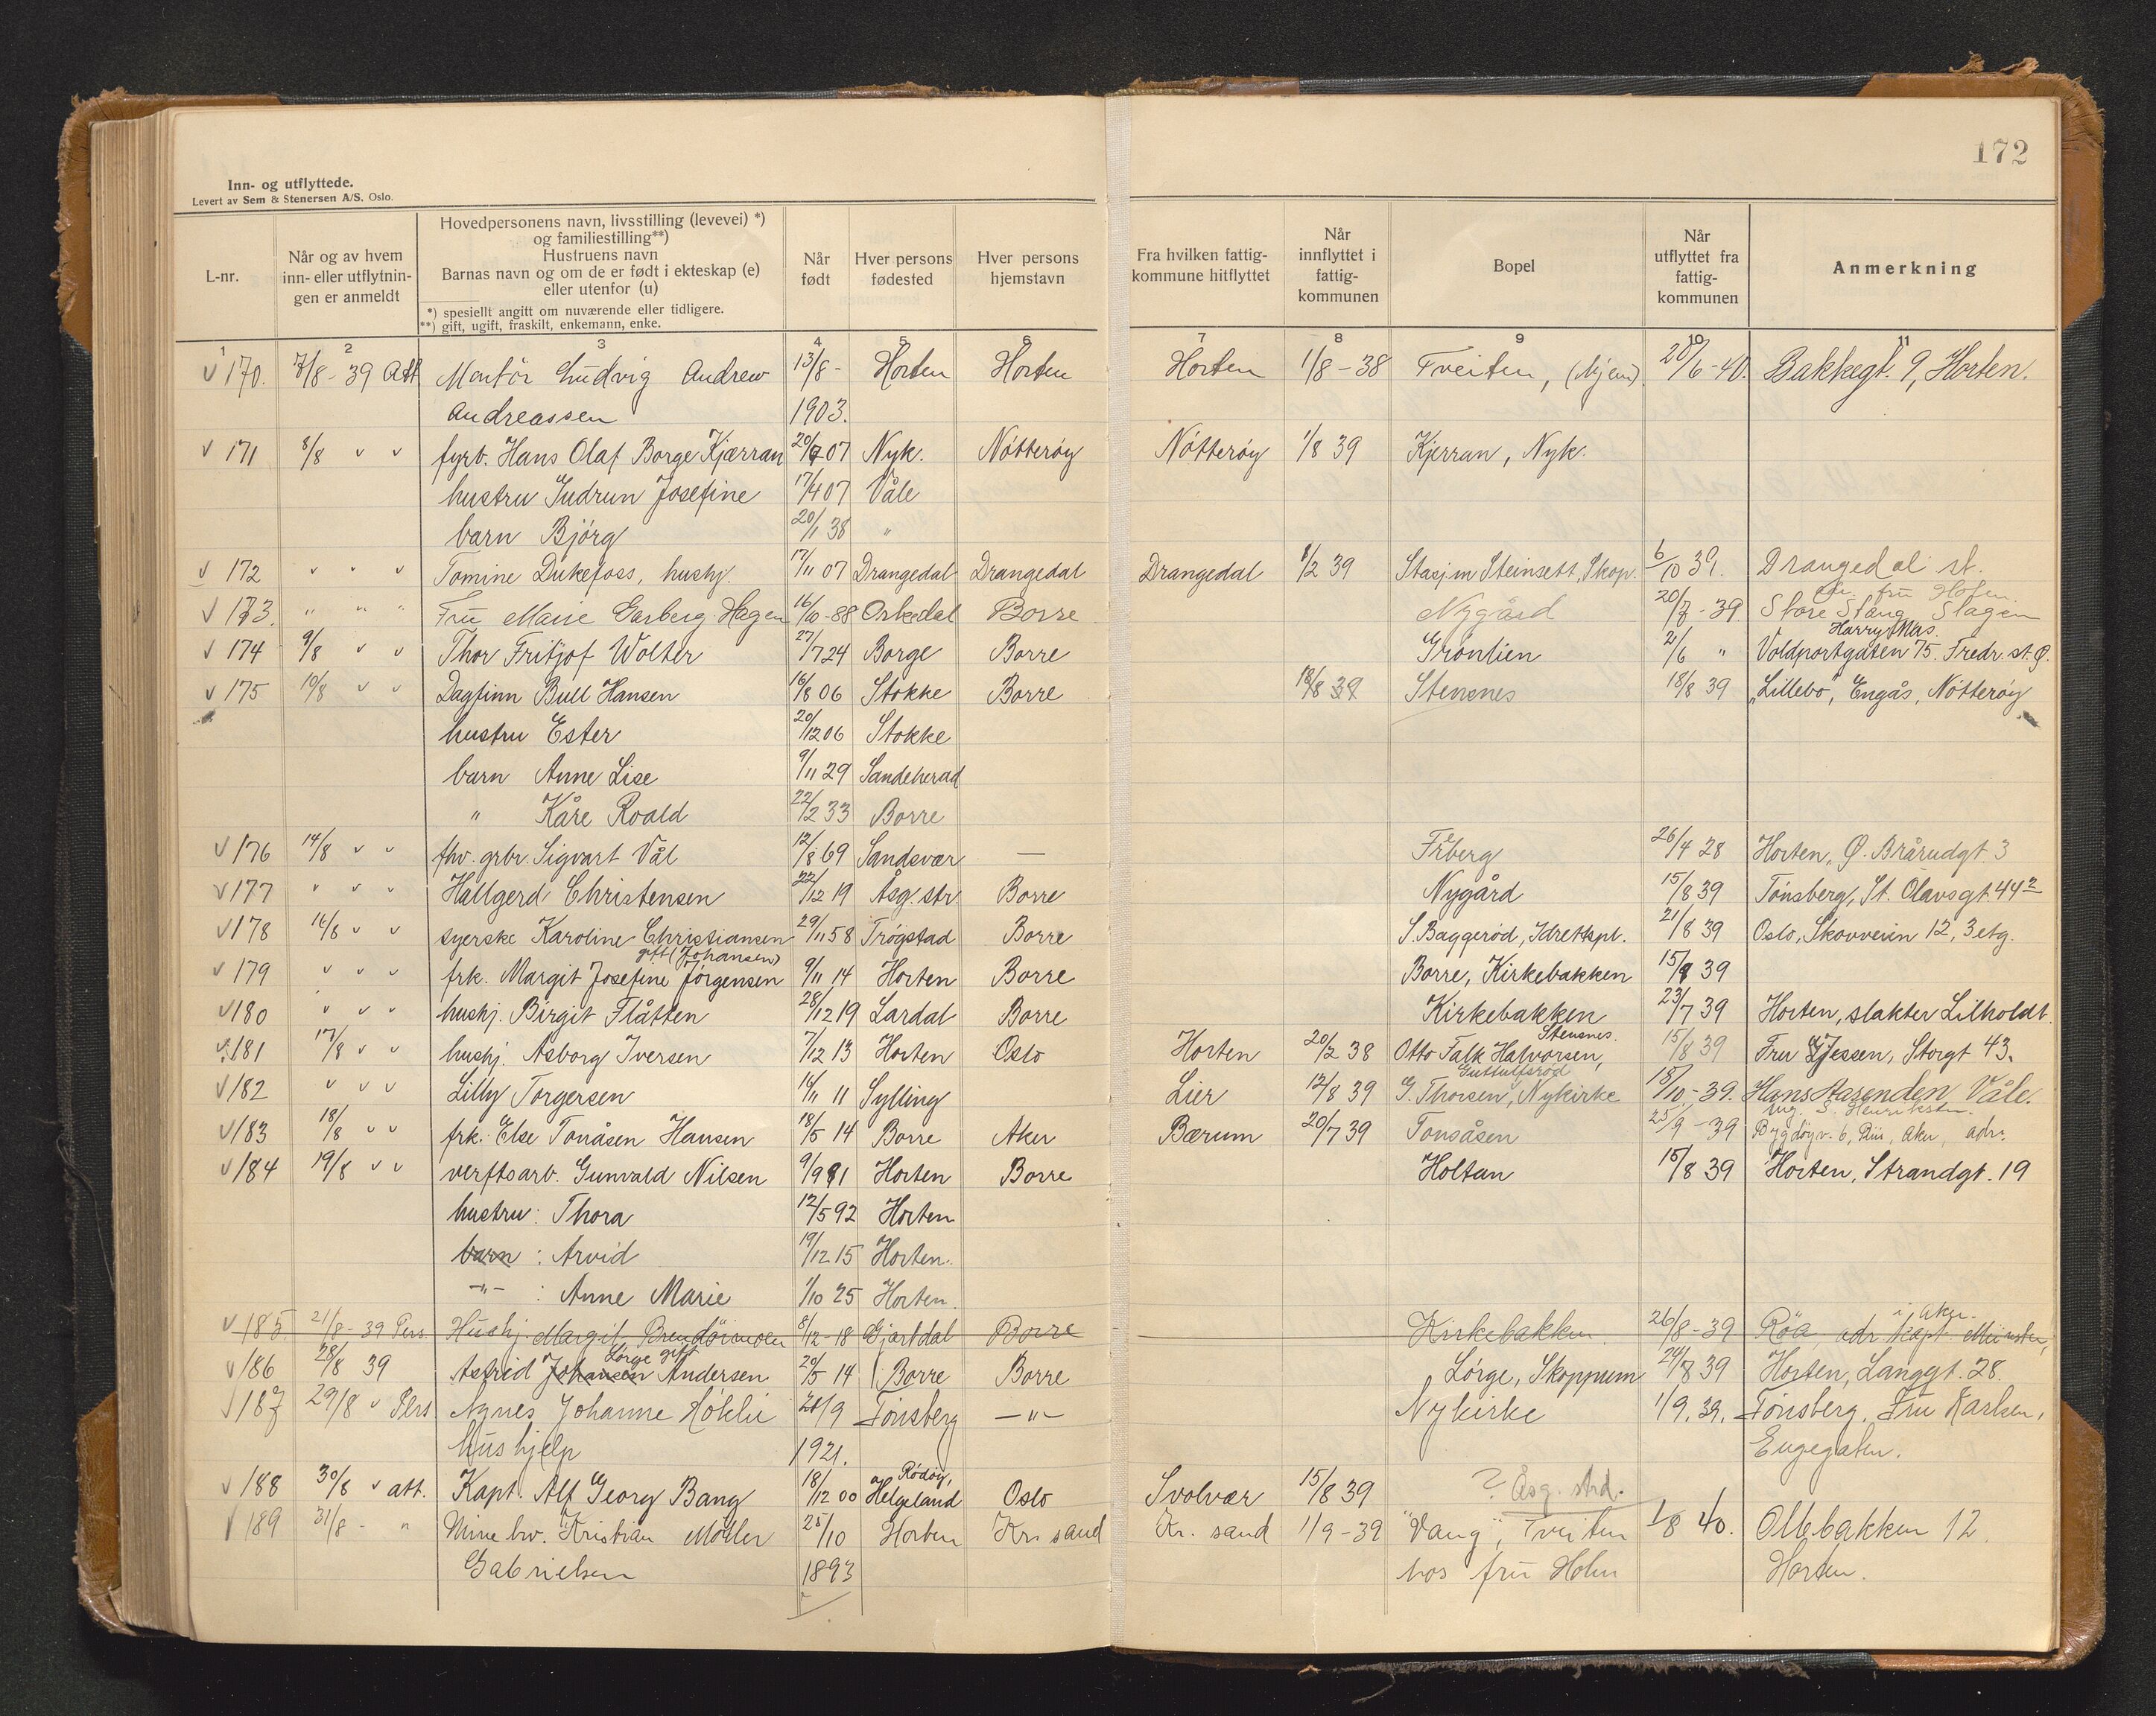 172
Inn- og utflyttede.
Levert av Sem & Stenersen A/S. Oslo.
L-nr.
Når og av hvem
inn- eller utflytnin-
gen er anmeldt
Hovedpersonens navn, livsstilling (levevei) *)
og familiestilling**)
Hustruens navn
Barnas navn og om de er født i ekteskap (e)
eller utenfor (u)
*) spesiellt angitt om nuværende eller tidligere.
**) gift, ugift, fraskilt, enkemann, enke.
Når
født
Hver persons
fødested
Hver persons
hjemstavn
Fra hvilken fattig-
kommune hitflyttet
Når
innflyttet i
fattig-
kommunen
Bopel
Når
utflyttet fra
fattig-
kommunen
Anmerkning
1 2 3 4 5 6 7 8 9 10 11
v 170. 7/8-39 Att Montör Ludvig Andrew 13/8- Horten Horten Horten 1/8-38 Tveiten, 20/6-40. Bakkegt. 9, Horten.
Andreassen 1903.
v 171 8/8 v v fyrb. Hans Olaf Borge Kjærran 20/7 07 Nyk. Nøtterøy Nøtterøy 1/8 39 Kjerran, Nyk.
hustru Gudrun Josefine 17/4 07 Våle
barn Bjørg 20/1 38 "
v 172 v " v Tomine Dukefoss, hushj. 17/11 07 Drangedal Drangedal Drangedal 1/2 39 Stasjm Steinsett, Skop. 6/10 39. Drangedal st.
v 173. " " " Fru Marie Garberg Hagen 16/10-88 Orkedal Borre Nygård 20/7-39. Store Stang Slagen
adr. fru Hofen
v 174 9/8 v v Thor Fritjof Wolter 27/7 24 Borge Borre Grønlien 2/6 " Voldportgaten 75. Fredr. st. Ø.
v 175 10/8 v v Dagfinn Bull Hansen 16/8 06 Stokke Borre 18/8 39 Stensnes 18/8 39 "Lillebo", Engås, Nøtterøy
hustru Ester 20/12 06 Stokke
barn Anne Lise 9/11 29 Sandeherad
" Kåre Roald 22/2 33 Borre
v 176 14/8 v v fhv. grbr. Sigvart Vål 12/8 69 Sandsvær — Freberg 26/4 28 Horten, Ø. Brårudgt. 3
v 177 " v " Hallgerd Christensen 22/12 19 Åsg. str Borre Nygård 15/8 39 Tønsberg, St. Olavsgt. 44²
v 178 16/8 v v syerske Karoline Christiansen 29/11 58 Trøgstad Borre S. Baggerød, Idrettspl. 21/8 39 Oslo, Skovveien 12, 3 etg.
gift (Johansen)
v 179 v v v frk. Margit Josefine Jørgensen 9/11 14 Horten Borre Borre, Kirkebakken 15/8 39
v 180 " v v hushj. Birgit Flåtten 28/12 19 Lardal Borre Kirkebakken 23/7 39 Horten, slakter Lilholdt.
v 181 17/8 v v hushj. Asborg Iversen 7/12 13 Horten Oslo Horten 20/2 38 Otto Falk Halvorsen, Stensnes. 15/8 39 Fru Jessen, Storgt 43.
v 182 v v v Lilly Torgersen 16/11 11 Sylling Lier 12/8 39 G. Thorsen, Guttulfsrød Nykirke 15/10-39. Hans Aasenden Våle.
v 183 18/8 v v frk. Else Tonåsen Hansen 18/5 14 Borre Aker Bærum 20/7 39 Tonsåsen 25/9-39 Bygdøyv. 6, Aker, adr.
Ing. S. Henriksen.
v 184 19/8 v v verftsarb. Gunvald Nilsen 9/9 81 Horten Borre Holtan 15/8 39 Horten, Strandgt. 19
hustru: Thora 12/5 92 Horten
barn: Arvid 19/12 15 Horten.
-"- : Anne Marie 1/10 25 Horten.
v 185. 21/8-39 Pers. Hushj. Margit 8/12-18 Hjartdal Borre Kirkebakken 26/8-39 Røa, adr. kapt. Münster, i Aker.
v 186 28/8 39 Astrid Johansen Lørge gift Andersen 20/5 14 Borre Borre Lørge, Skoppum 24/7 39 Horten, Langgt. 28.
v 187 29/8 v Pers Agnes Johanne Høkli 21/9 Tønsberg -"- Nykirke 1/9. 39. Tønsberg. Fru Karlsen,
hushjelp 1921. Engegaten.
v 188 30/8 v att. Kapt. Alf Georg Bang 18/12 00 Rødøy, Helgeland Oslo Svolvær 15/8 39 ? Åsg. strd.
v 189 31/8 - " Minebw. Kristian Møller 25/10 Horten Kr. sand Kr. sand 1/9-39 "Vang", Tveiten 1/8 40. Ollebakken 12
Gabrielsen 1893 hos fru Holm Horten.